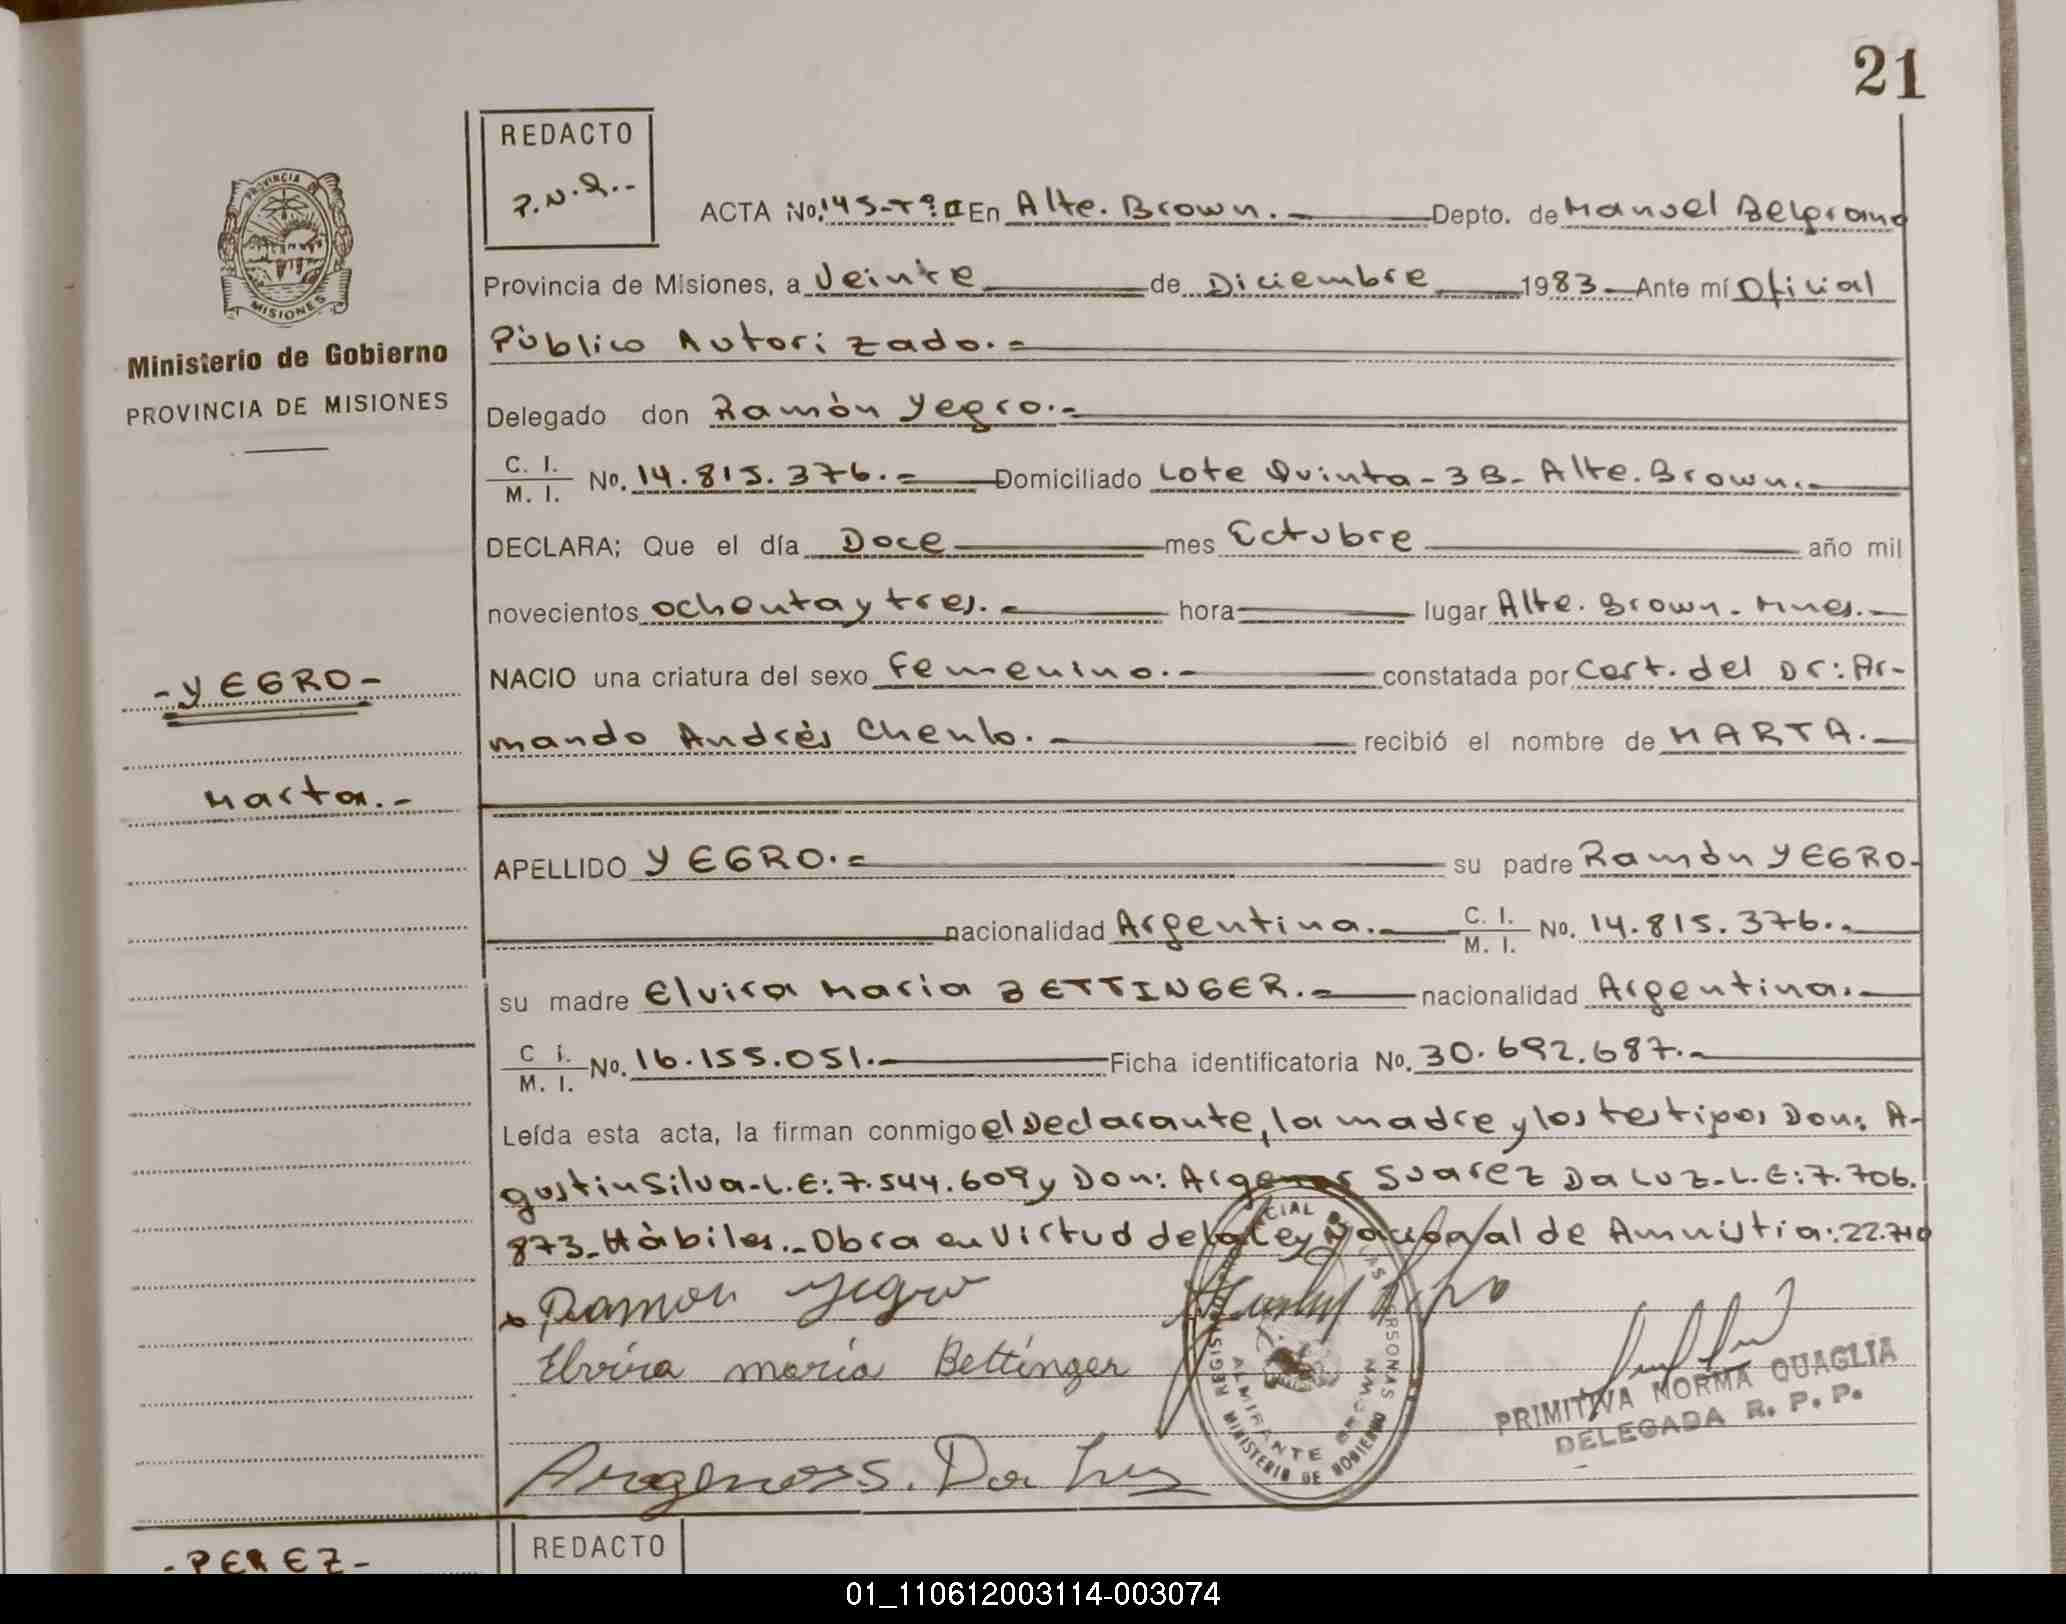 21
REDACTO
P.N.Q.--
PROVINCIA DE
MISIONES
Ministerio de Gobierno
PROVINCIA DE MISIONES
ACTA No. 145-Tº II En Alte. Brown.- Depto. de Manuel Belgrano
Provincia de Misiones, a Veinte de Diciembre 1983 Ante mí Oficial
Pùblico Autorizado.-
Delegado don Ramòn Yegro.-
C. I. / M. I. No. 14.815.376.- Domiciliado Lote Quinta-3B-Alte.Brown.-
DECLARA; Que el día Doce mes Octubre año mil
novecientos ochenta y tres.- hora lugar Alte. Brown-Mnes.-
-YEGRO-
NACIO una criatura del sexo Femenino.- constatada por Cert. del Dr: Ar-
mando Andrès Chenlo.- recibió el nombre de MARTA.-
Marta.-
APELLIDO YEGRO.- su padre Ramòn YEGRO.
nacionalidad Argentina.- C. I. / M. I. No. 14.815.376.-
su madre Elvira Maria BETTINGER.- nacionalidad Argentina.-
C I. / M. I. No. 16.155.051.- Ficha identificatoria No. 30.692.687.-
Leída esta acta, la firman conmigo el Declarante, la madre y los testigos Don: A-
gustin Silva-L.E:7.544.609 y Don: Argenor Suarez Da Luz-L.E:7.706.
873-Hàbiles.-Obra en Virtud de la Ley Nacional de Amnistia:22.710
Ramon Yegro
Elvira maria Bettinger
PRIMITIVA NORMA QUAGLIA
DELEGADA R. P. P.
Argenors S. Da Luz
ALMIRANTE BROWN
MINISTERIO DE GOBIERNO
-PEREZ-
REDACTO
01_110612003114-003074